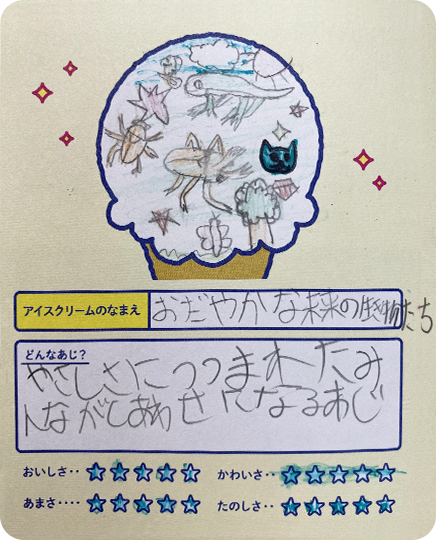 アイスクリームのなまえ おだやかな未来の生き物たち
どんなあじ？
やさしさにつつまれたみ
んながしあわせになるあじ
おいしさ‥ ★★★★★ かわいさ‥ ★★★★★
あまさ‥‥ ★★★★★ たのしさ‥ ★★★★★